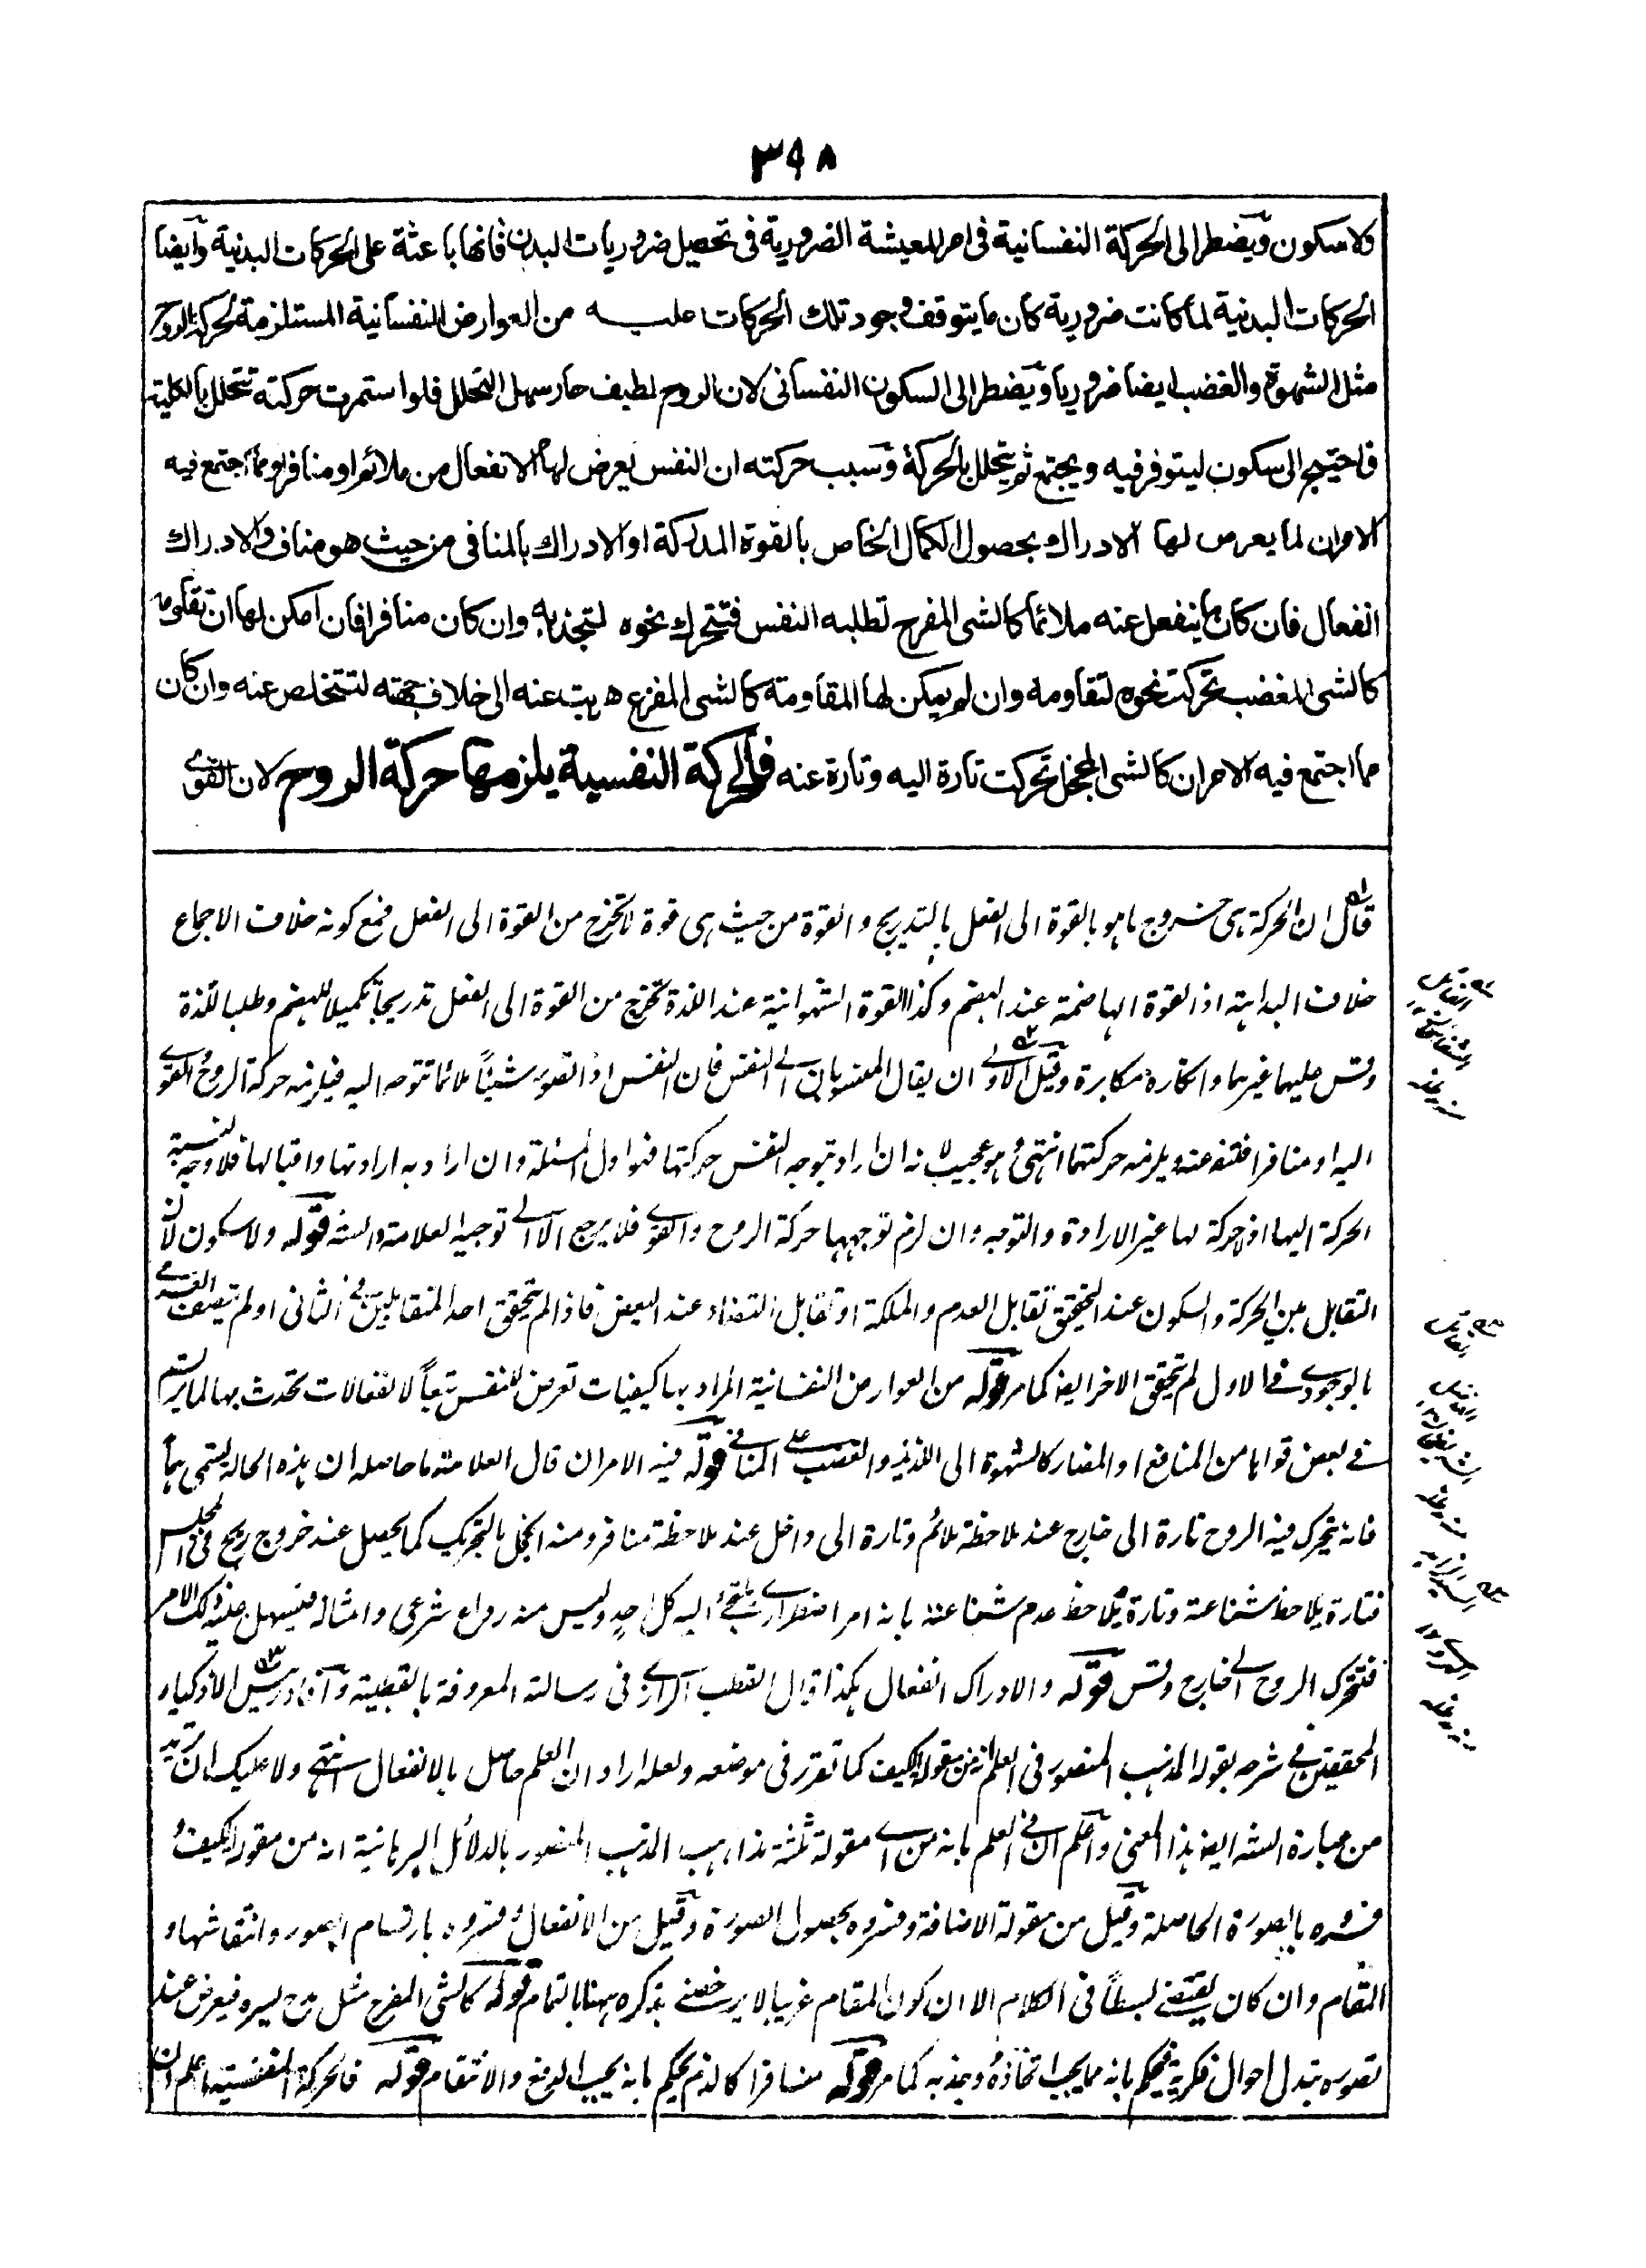 ٣٩٨
ولا سكون ويضطر الى الحركة النفسانية فى امر المعيشة الضرورية فى تحصيل ضروريات البدن فانها باعثة على الحركات البدنية وايضا
الحركات البدنية لما كانت ضرورية كان ما يتوقف وجود تلك الحركات عليه من العوارض النفسانية المستلزمة لحركة الروح
مثل الشهوة والغضب ايضا ضروريا ويضطر الى السكون النفسانى لان الروح لطيف حار سهل التحلل فلو استمرت حركته تتحلل بالكلية
فاحتيج الى سكون ليتوفر فيه ويجتمع ثم يتحلل بالحركة وسبب حركته ان النفس يعرض لها الانفعال من ملائم او منافر او مما اجتمع فيه
الامران لما يعرض لها الادراك بحصول الكمال الخاص بالقوة المدركة او الادراك بالمنافى من حيث هو مناف والادراك
انفعال فان كان ما ينفعل عنه ملائما كالشى المفرح تطلبه النفس فتتحرك نحوه لتجذبه وان كان منافرا فان امكن لها ان تقاومه
كالشى المغضب تحركت نحوه لتقاومه وان لم يمكن لها المقاومة كالشى المفزع هربت عنه الى خلاف جهته لتتخلص عنه وان كان
مما اجتمع فيه الامران كالشى المخجل تحركت تارة اليه وتارة عنه فالحركة النفسية يلزمها حركة الروح لان القوى
قال ان الحركة هى خروج ما هو بالقوة الى الفعل بالتدريج والقوة من حيث هى قوة لا تخرج من القوة الى الفعل فمع كونه خلاف الاجماع
خلاف البداهة اذ القوة الهاضمة عند الهضم وكذا القوة الشهوانية عند اللذة تخرج من القوة الى الفعل تدريجا تكميلا للهضم وطلبا للذة
وقس عليهما غيرهما وانكاره مكابرة وقيل الاولى ان يقال المنسوبان الى النفس فان النفس اذا تصور شيئا ملائما تتوجه اليه فيلزمه حركة الروح والقوى
اليه او منافرا فتنفر عنه ويلزمه حركتهما انتهى وهو عجيب لانه ان اراد بتوجه النفس حركتها فهو اول المسئلة وان اراد به ارادتها واقبالها فلا وجه لنسبة
الحركة اليها اذ لا حركة لها غير الارادة والتوجه وان لزم توجهها حركة الروح والقوى فلا يرجع الا الى توجيه العلامة والشه قوله ولا سكون لان
التقابل بين الحركة والسكون عند التحقيق تقابل العدم والملكة او تقابل التضاد عند البعض فاذا لم يتحقق احد المتقابلين فى الثانى او لم يتصف
بالوجودى فى الاول لم يتحقق الاخر ايضا كما مر قوله من العوارض النفسانية المراد بها كيفيات تعرض للنفس تبعا لانفعالات تحدث بها لما يرتسم
فى بعض قواها من المنافع او المضار كالشهوة الى اللذيذ والغضب على المنافى قوله فيه الامران قال العلامة ما حاصله ان هذه الحالة ليتمى بها
فانه يتحرك فيه الروح تارة الى خارج عند ملاحظة ملائم وتارة الى داخل عند ملاحظة منافر ومنه الخجل بالتحريك كما يحصل عند خروج ريح فى المجلس
فتارة يلاحظ شناعته وتارة يلاحظ عدم شناعته بانه امر اضطرارى اليه كل احد وليس منه رداع شرعى وامثاله فيسهل عليه ذلك الامر
فتتحرك الروح الى الخارج وقس قوله والادراك انفعال هكذا قال القطب الرازى فى رسالته المعروفة بالقطبية وافاد رئيس الاذكياء
المحققين فى شرحه بقوله المذهب المنصور فى العلم انه من مقولة الكيف كما تقرر فى موضعه ولعله اراد ان العلم حاصل بالانفعال انتهى ولا عليك ان تريد
من عبارة الشه ايضا هذا المعنى واعلم ان فى العلم بانه من اى مقولة ثلثة مذاهب المذهب المنصور بالدلائل البرهانية انه من مقولة الكيف و
فسروه بالصورة الحاصلة وقيل من مقولة الاضافة وفسروه بحصول الصورة وقيل من الانفعال وفسروه بارتسام الصور وانتقاشها و
المقام وان كان يقتضى بسطا فى الكلام الا ان كون المقام غريبا لا يرخصنى بذكره ههنا بالتمام قوله كالشى المفرح مثل فيعرض عند
تصوره تبدل احوال فكرية فيحكم بانه مما يجب اتخاذه وجذبه كما مر قوله منافرا كالذم يحكم بانه يجب الدفع والانتقام قوله فالحركة النفسية اعلم ان